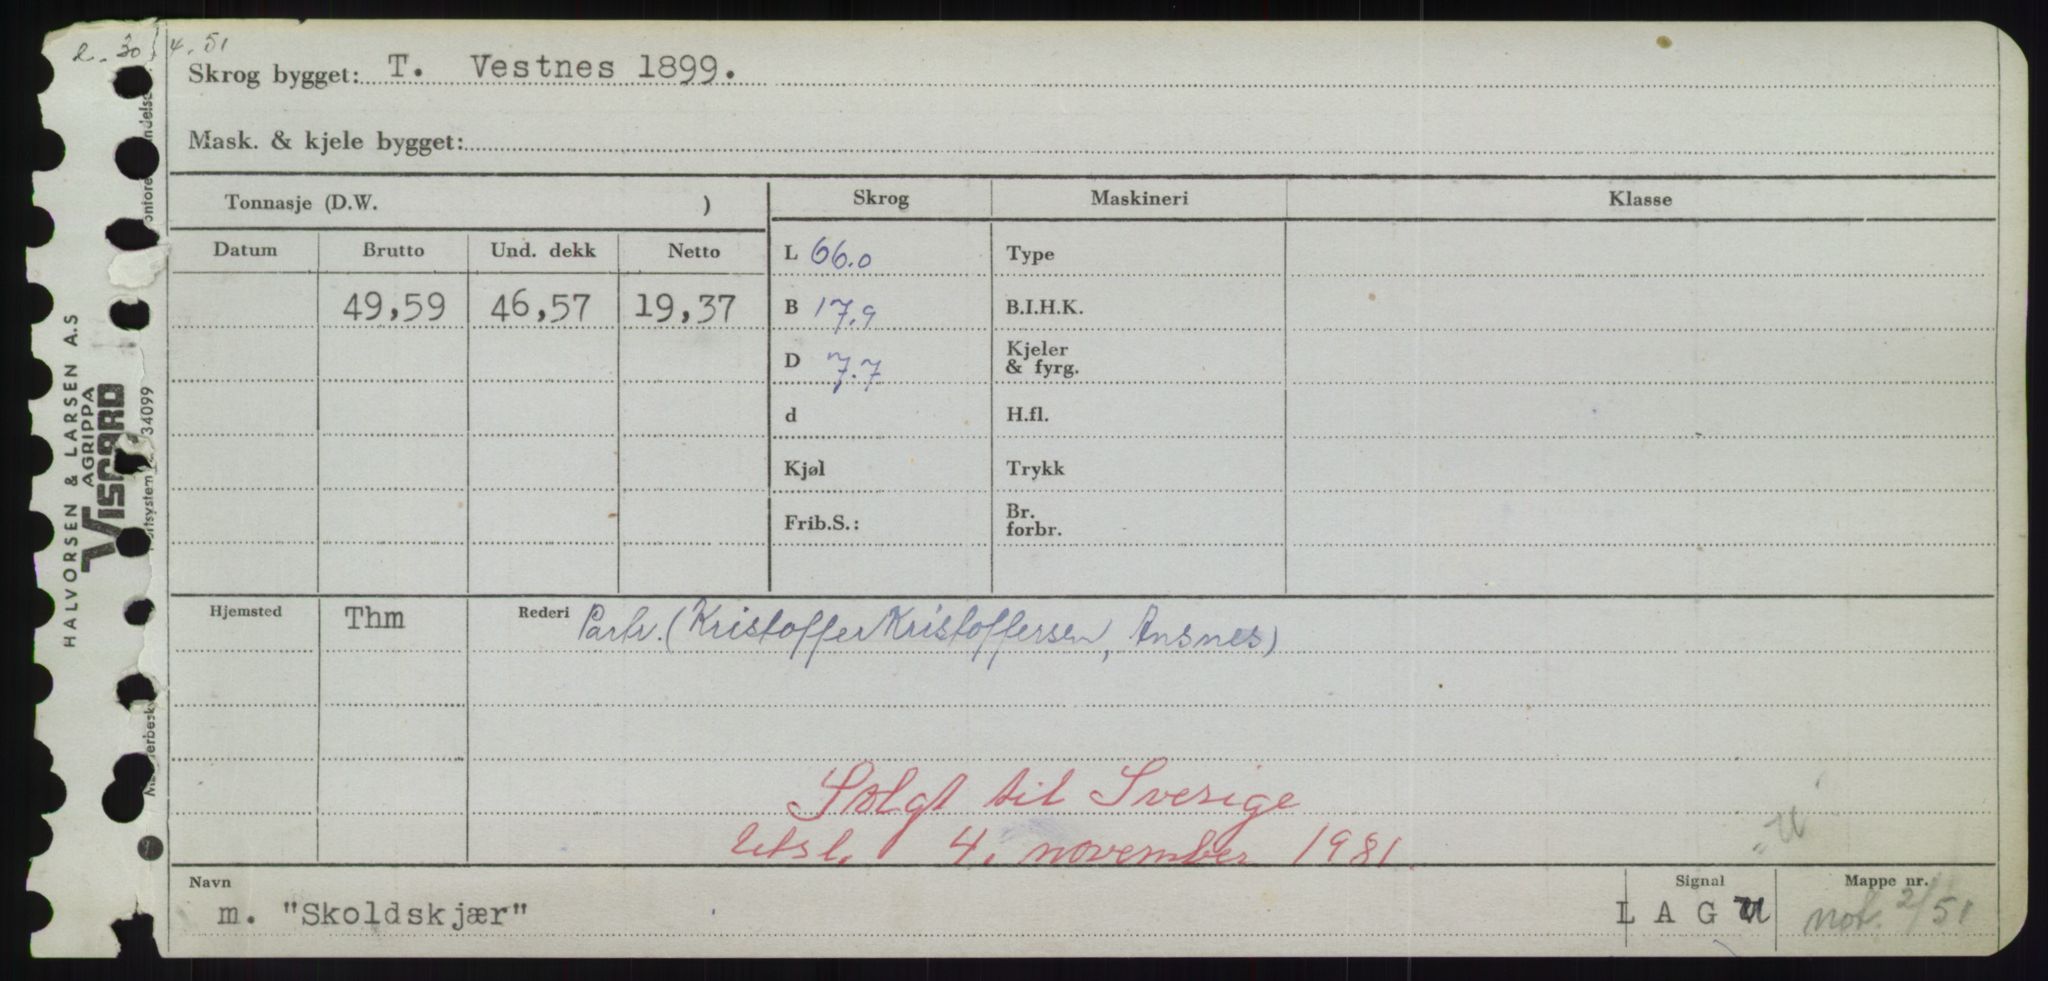 2. 30/4. 51
Skrog bygget: T. Vestnes 1899.
Mask. & kjele bygget:
Tonnasje (D.W. )
Skrog
Maskineri
Klasse
Datum
Brutto
Und. dekk
Netto
49,59
46,57
19,37
L 66.0
B 17.9
D 7.7
d
Kjøl
Frib.S.:
Type
B.I.H.K.
Kjeler
& fyrg.
H.fl.
Trykk
Br.
forbr.
Hjemsted Thm
Rederi Partr. (Kristoffer Kristoffersen, Ansnes)
Solgt til Sverige
Utsl. 4. november 1981
"U"
Navn
m. "Skoldskjær"
Signal
L A G U
Mappe nr.
not. 2/51
HALVORSEN & LARSEN A.S
AGRIPPA
VISCARD
34099